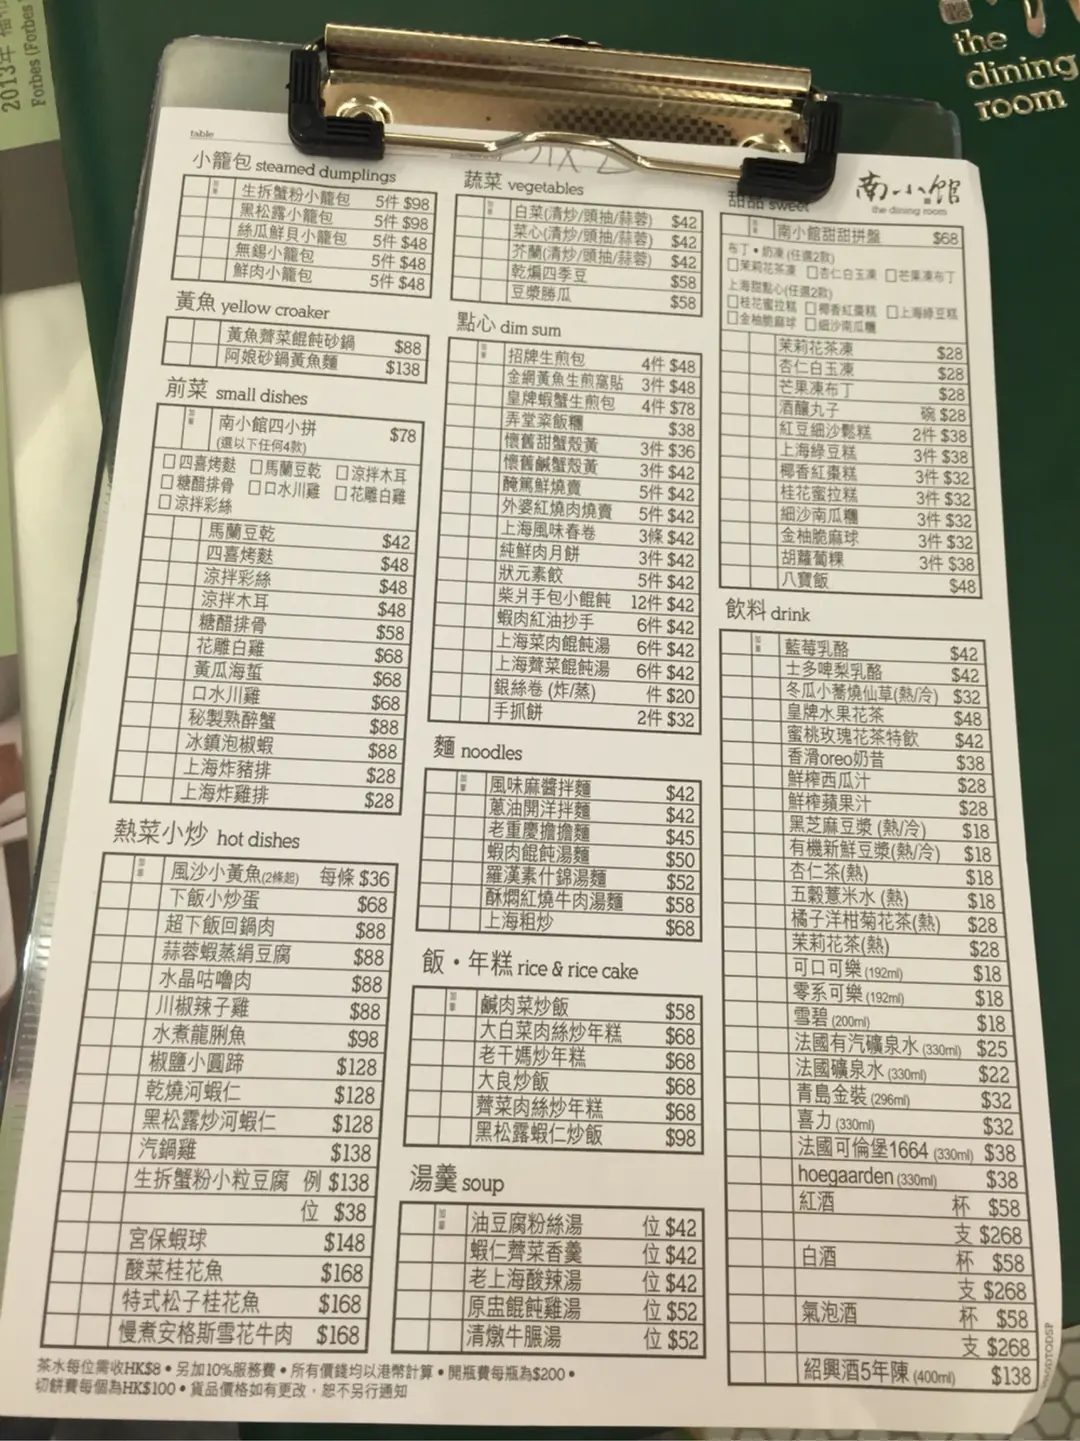 2013年
Forbes (Forbes
the
dining
room
table
南小館
the dining room
小籠包 steamed dumplings
生拆蟹粉小籠包 5件 $98
黑松露小籠包 5件 $98
絲瓜鮮貝小籠包 5件 $48
無錫小籠包 5件 $48
鮮肉小籠包 5件 $48
黃魚 yellow croaker
黃魚薺菜餛飩砂鍋 $88
阿娘砂鍋黃魚麵 $138
前菜 small dishes
南小館四小拼 $78
(選以下任何4款)
□四喜烤麩 □馬蘭豆乾 □涼拌木耳
□糖醋排骨 □口水川雞 □花雕白雞
□涼拌彩絲
馬蘭豆乾 $42
四喜烤麩 $48
涼拌彩絲 $48
涼拌木耳 $48
糖醋排骨 $58
花雕白雞 $68
黃瓜海蜇 $68
口水川雞 $68
秘製熟醉蟹 $88
冰鎮泡椒蝦 $88
上海炸豬排 $28
上海炸雞排 $28
熱菜小炒 hot dishes
風沙小黃魚(2條起) 每條 $36
下飯小炒蛋 $68
超下飯回鍋肉 $88
蒜蓉蝦蒸絹豆腐 $88
水晶咕嚕肉 $88
川椒辣子雞 $88
水煮龍脷魚 $98
椒鹽小圓蹄 $128
乾燒河蝦仁 $128
黑松露炒河蝦仁 $128
汽鍋雞 $138
生拆蟹粉小粒豆腐 例 $138
位 $38
宮保蝦球 $148
酸菜桂花魚 $168
特式松子桂花魚 $168
慢煮安格斯雪花牛肉 $168
蔬菜 vegetables
白菜(清炒/頭抽/蒜蓉) $42
菜心(清炒/頭抽/蒜蓉) $42
芥蘭(清炒/頭抽/蒜蓉) $42
乾煸四季豆 $58
豆漿勝瓜 $58
點心 dim sum
招牌生煎包 4件 $48
金網黃魚生煎窩貼 3件 $48
皇牌蝦蟹生煎包 4件 $78
弄堂粢飯糰 $38
懷舊甜蟹殼黃 3件 $36
懷舊鹹蟹殼黃 3件 $42
醃篤鮮燒賣 5件 $42
外婆紅燒肉燒賣 5件 $42
上海風味春卷 3條 $42
純鮮肉月餅 3件 $42
狀元素餃 5件 $42
柴爿手包小餛飩 12件 $42
蝦肉紅油抄手 6件 $42
上海菜肉餛飩湯 6件 $42
上海薺菜餛飩湯 6件 $42
銀絲卷 (炸/蒸) 件 $20
手抓餅 2件 $32
麵 noodles
風味麻醬拌麵 $42
蔥油開洋拌麵 $42
老重慶擔擔麵 $45
蝦肉餛飩湯麵 $50
羅漢素什錦湯麵 $52
酥燜紅燒牛肉湯麵 $58
上海粗炒 $68
飯・年糕 rice & rice cake
鹹肉菜炒飯 $58
大白菜肉絲炒年糕 $68
老干媽炒年糕 $68
大良炒飯 $68
薺菜肉絲炒年糕 $68
黑松露蝦仁炒飯 $98
湯羹 soup
油豆腐粉絲湯 位 $42
蝦仁薺菜香羹 位 $42
老上海酸辣湯 位 $42
原盅餛飩雞湯 位 $52
清燉牛𦟌湯 位 $52
甜品 sweet
南小館甜甜拼盤 $68
布丁・奶凍 (任選2款)
□茉莉花茶凍 □杏仁白玉凍 □芒果凍布丁
上海甜點心(任選2款)
□桂花蜜拉糕 □椰香紅棗糕 □上海綠豆糕
□金柚脆麻球 □細沙南瓜糰
茉莉花茶凍 $28
杏仁白玉凍 $28
芒果凍布丁 $28
酒釀丸子 碗 $28
紅豆細沙鬆糕 2件 $38
上海綠豆糕 3件 $38
椰香紅棗糕 3件 $32
桂花蜜拉糕 3件 $32
細沙南瓜糰 3件 $32
金柚脆麻球 3件 $32
胡蘿蔔粿 3件 $38
八寶飯 $48
飲料 drink
藍莓乳酪 $42
士多啤梨乳酪 $42
冬瓜小蕎燒仙草(熱/冷) $32
皇牌水果花茶 $48
蜜桃玫瑰花茶特飲 $42
香滑oreo奶昔 $38
鮮榨西瓜汁 $28
鮮榨蘋果汁 $28
黑芝麻豆漿 (熱/冷) $18
有機新鮮豆漿(熱/冷) $18
杏仁茶(熱) $18
五穀薏米水 (熱) $18
橘子洋柑菊花茶(熱) $28
茉莉花茶(熱) $28
可口可樂 (192ml) $18
零系可樂 (192ml) $18
雪碧 (200ml) $18
法國有汽礦泉水 (330ml) $25
法國礦泉水 (330ml) $22
青島金裝 (296ml) $32
喜力 (330ml) $32
法國可倫堡1664 (330ml) $38
hoegaarden (330ml) $38
紅酒 杯 $58
支 $268
白酒 杯 $58
支 $268
氣泡酒 杯 $58
支 $268
紹興酒5年陳 (400ml) $138
茶水每位需收HK$8・另加10%服務費・所有價錢均以港幣計算・開瓶費每瓶為$200・
切餅費每個為HK$100・貨品價格如有更改，恕不另行通知